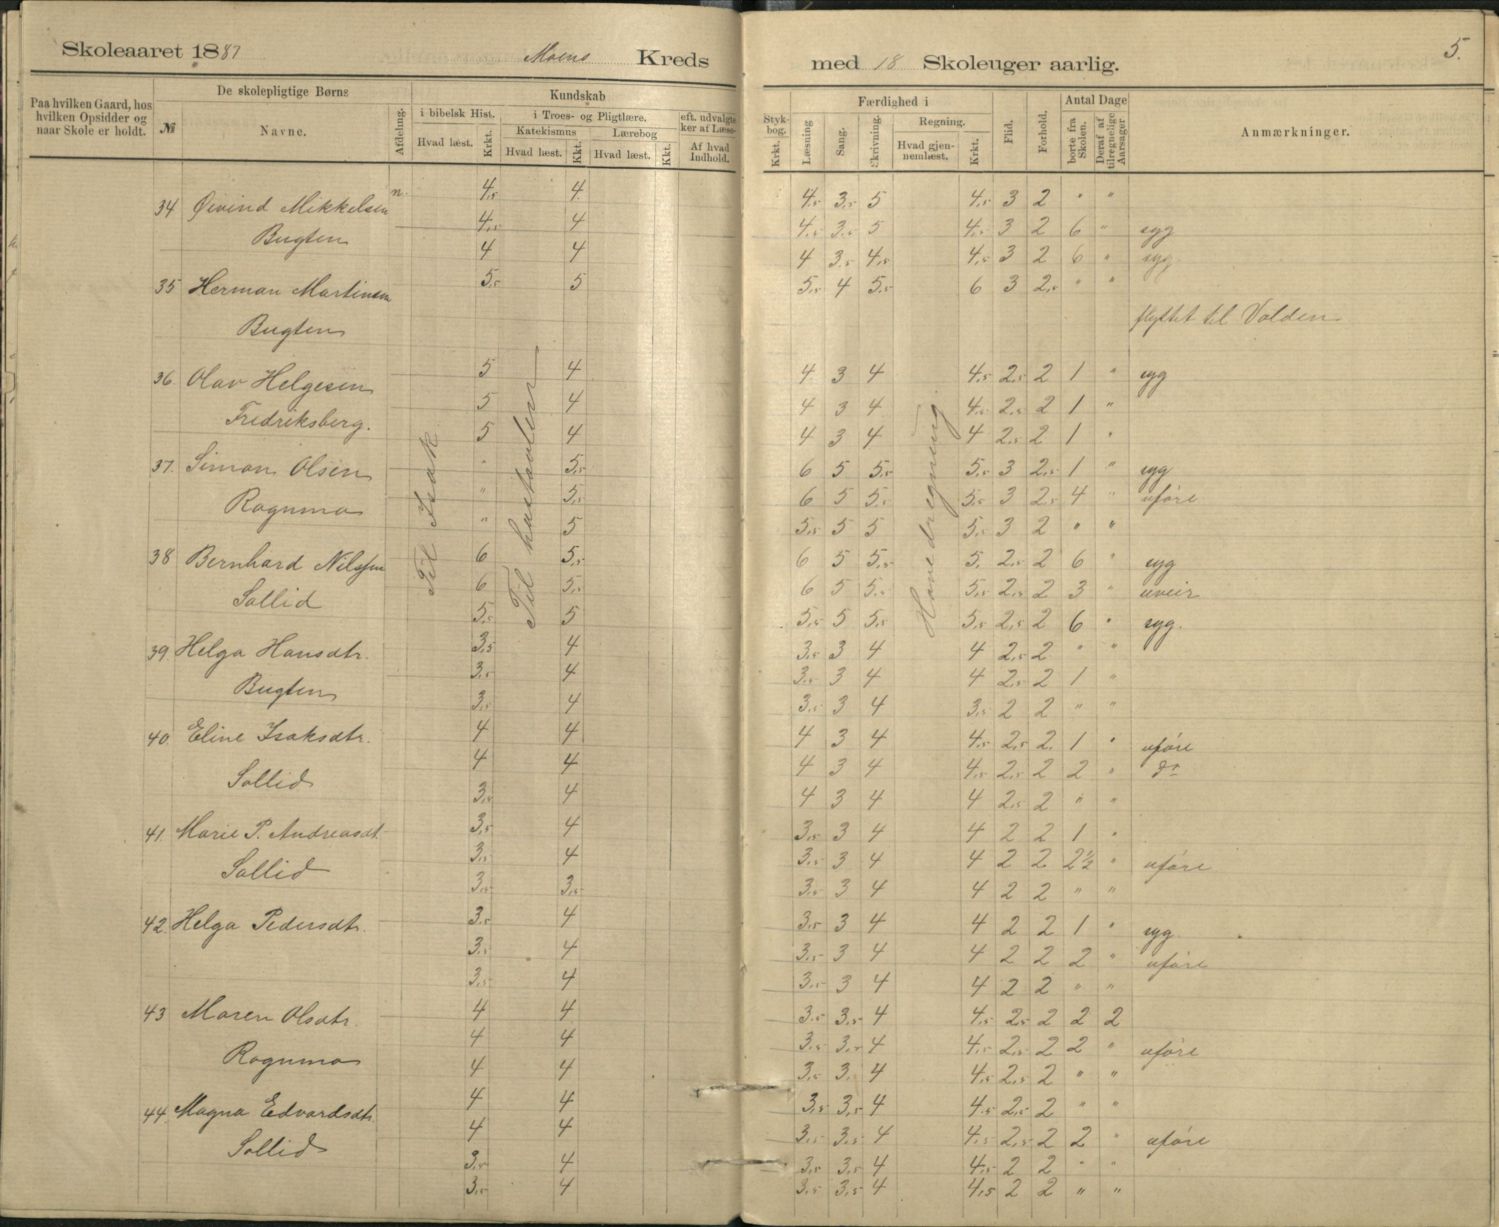 Skoleaaret 1887 Moens Kreds med 18 Skoleuger aarlig. 5.
Paa hvilken Gaard, hos hvilken Opsidder og naar Skole er holdt.
De skolepligtige Børns
№ Navne. Afdeling.
Kundskab
i bibelsk Hist. i Troes- og Pligtlære. eft. udvalgte Stykker af Læsebog.
Katekismus Lærebog
Hvad læst. Krkt. Hvad læst. Kkt. Hvad læst. Kkt. Af hvad Indhold. Krkt.
Færdighed i
Læsning Sang. Skrivning. Regning. Hvad gjennemlæst. Krkt.
Flid. Forhold.
Antal Dage
borte fra Skolen. Deraf af tilregnelige Aarsager
Anmærkninger.
Til Isak
Haderegning
34 Øivind Mikkelsen n. 4.5 4. 4.5 3.5 5 4.5 3 2 " "
Bugten 4.5 4 4.5 3.5 5 4.5 3 2 6 " syg
4 4 4 3.5 4.5 4.5 3 2 6 " syg
35 Herman Martinsen 5.5 5 5.5 4 5.5 6 3 2.5 " "
Bugten flyttet til Volden
36. Olav Helgesen 5 4 4 3 4 4.5 2.5 2 1 " syg
Fredriksberg. 5 4 4 3 4 4.5 2.5 2 1 "
5 4 4 3 4 4 2.5 2 1 "
37. Simon Olsen " 5.5 6 5 5.5 5.5 3 2.5 1 " syg
Rognmo " 5.5 6 5 5.5 5.5 3 2.5 4 " uføre
" 5 5.5 5 5 5.5 3 2 " "
38 Bernhard Nilssen 6 5.5 6 5 5.5 5. 2.5 2 6 " syg
Sollid 6 5.5 6 5 5.5 5.5 2.5 2 3 " uveir
5.5 5 5.5 5 5.5 5.5 2.5 2 6 " syg.
39 Helga Hansdtr. 3.5 4 3.5 3 4 4 2.5 2 " "
Bugten 3.5 4 3.5 3 4 4 2.5 2 1 "
3.5 4 3.5 3 4 3.5 2 2 " "
40. Eline Isaksdtr. 4 4 4 3 4 4.5 2.5 2. 1 " uføre
Sollid 4 4 4 3 4 4.5 2.5 2 2 " do
3.5 4 4 3 4 4 2.5 2 " "
41. Marie P. Andreasdt 3.5 4 3.5 3 4 4 2 2 1 "
Sollid 3.5 4 3.5 3 4 4 2 2 2½ " uføre
3.5 3.5 3.5 3 4 4 2 2 " "
42. Helga Pedersdtr. 3.5 4 3.5 3 4 4 2 2 1 " syg
3.5 4 3.5 3 4 4 2 2 2 " uføre
3.5 4 3.5 3 4 4 2 2 " "
43 Maren Olsdtr. 4 4 3.5 3.5 4 4.5 2.5 2 2 2
Rognmo 4 4 3.5 3.5 4 4.5 2.5 2 2 " uføre
4 4 3.5 3. 4 4.5 2.5 2 " "
44. Magna Edvardsdtr 4 4 3.5 3.5 4 4.5 2.5 2 " "
Sollid 4 4 3.5 3.5 4 4.5 2.5 2 2 " uføre
3.5 4 3.5 3.5 4 4.5 2 2 " "
3.5 4 3.5 3.5 4 4.5 2 2 " "